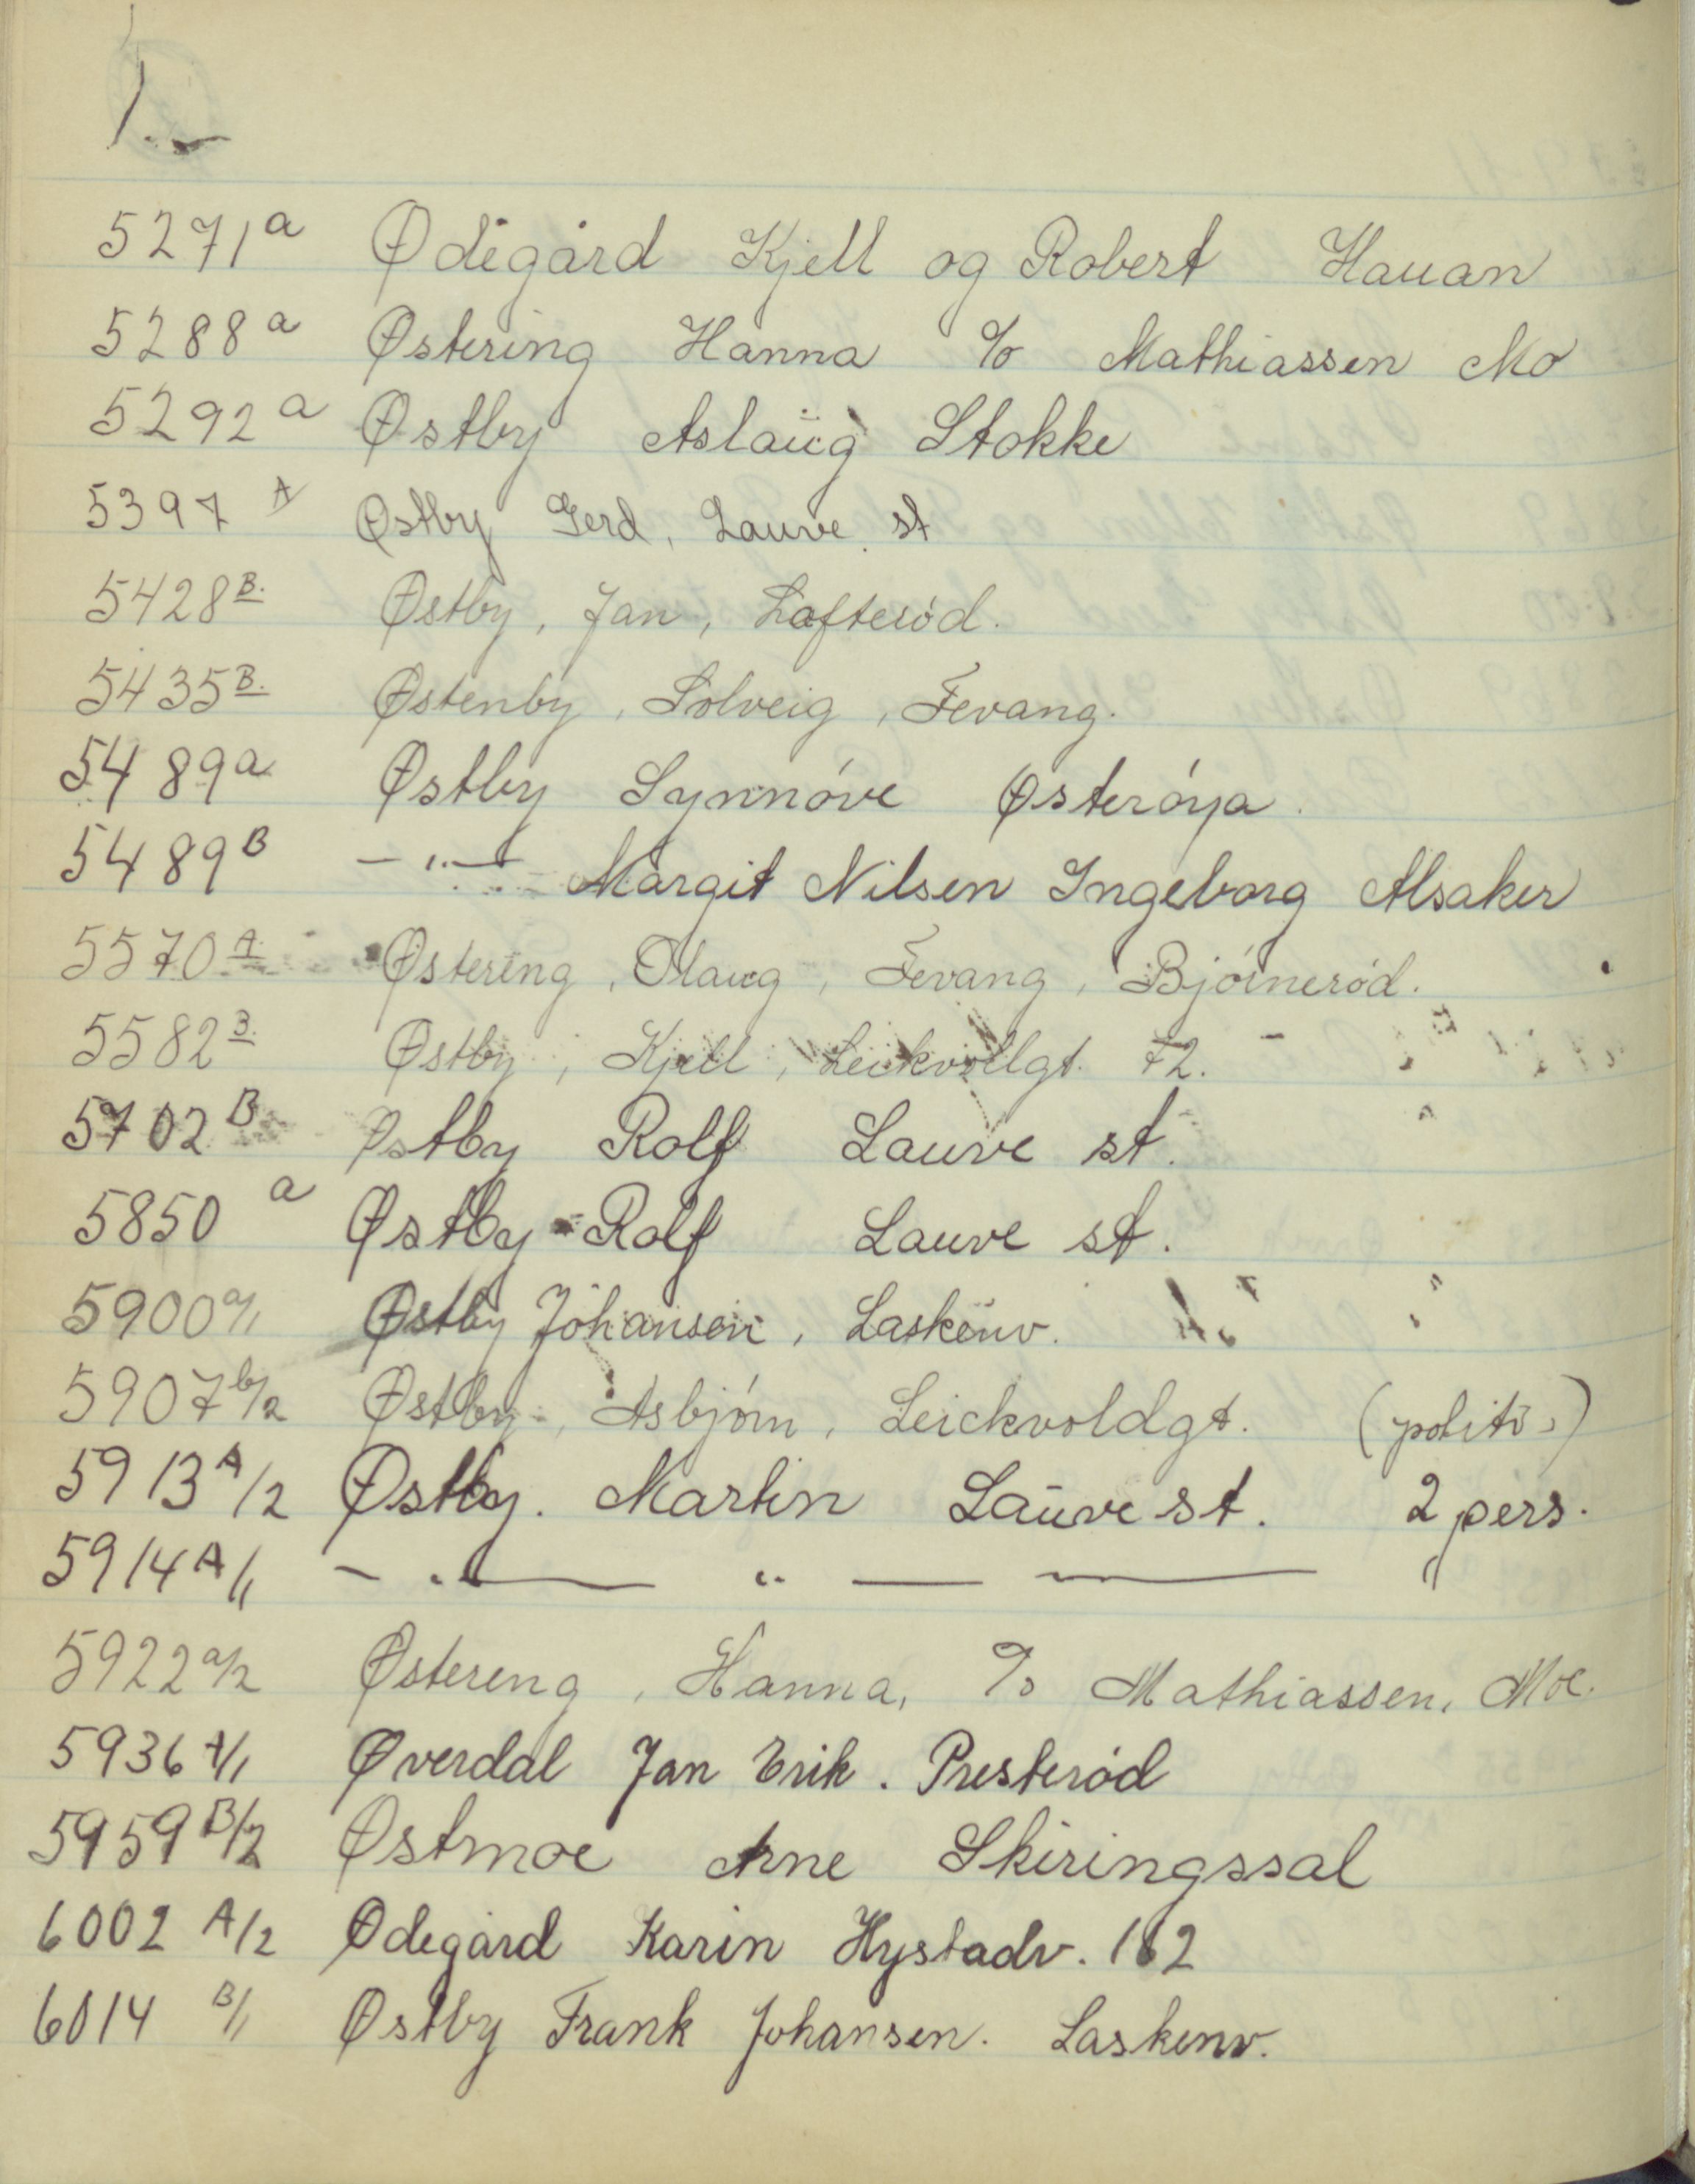 1.-
5271a Ødegård Kjell og Robert Hauan
5288a Østering Hanna c/o Mathiassen Mo
5292a Østby Aslaüg Stokke
5397 A Østby Gerd, Lauve. st
5428B. Østby, Jan, Lofterød.
5435B. Østenby, Solveig, Fevang.
5489a Østby Synnøve Østerøya.
5489B -"- Margit Nilsen Ingeborg Alsaker
5570A. Østering, Olaug, Fevang, Bjørnerød.
5582B. Østby, Kjell, Leickvollgt. 72.
5702B Østby Rolf Lauve st.
5850 a Østby Rolf Lauve st.
5900a/1 Østby Johansen, Laskenv.
5907b/2 Østby, Asbjørn, Leickvoldgt. (politi)
5913A/2 Østby. Martin Lauve st. 2 pers.
5914A/1 - " - " - - "
5922a/2 Østereng, Hanna, c/o Mathiassen, Moe.
5936A/1 Øverdal Jan Erik. Presterød
5959B/2 Østmoe Arne Skiringssal
6002 A/2 Ødegård Karin Hystadv. 162
6014 B/1 Østby Frank Johansen. Laskenv.